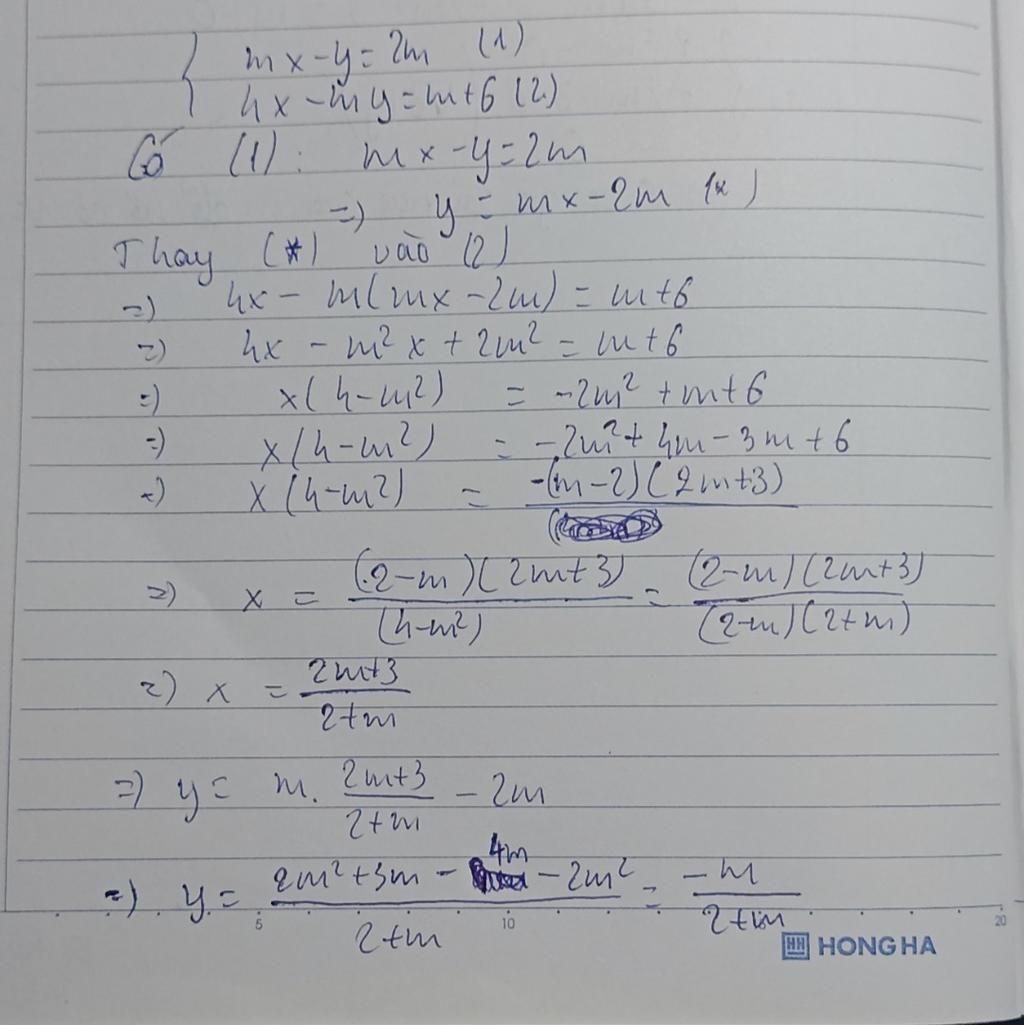 { mx - y = 2m (1)
4x - my = m+6 (2)
Có (1): mx - y = 2m
=) y = mx - 2m (*)
Thay (*) vào (2)
=) 4x - m(mx - 2m) = m+6
=) 4x - m²x + 2m² = m+6
=) x(4-m²) = -2m² + m+6
=) x(4-m²) = -2m² + 4m - 3m + 6
=) x(4-m²) = -(m-2)(2m+3)
=) x = (2-m)(2m+3)/(4-m²) = (2-m)(2m+3)/(2-m)(2+m)
=) x = 2m+3/2+m
=) y = m. 2m+3/2+m - 2m
=) y = 2m²+3m - 4m - 2m²/2+m = -m/2+m
5 10 20
HH HONG HA